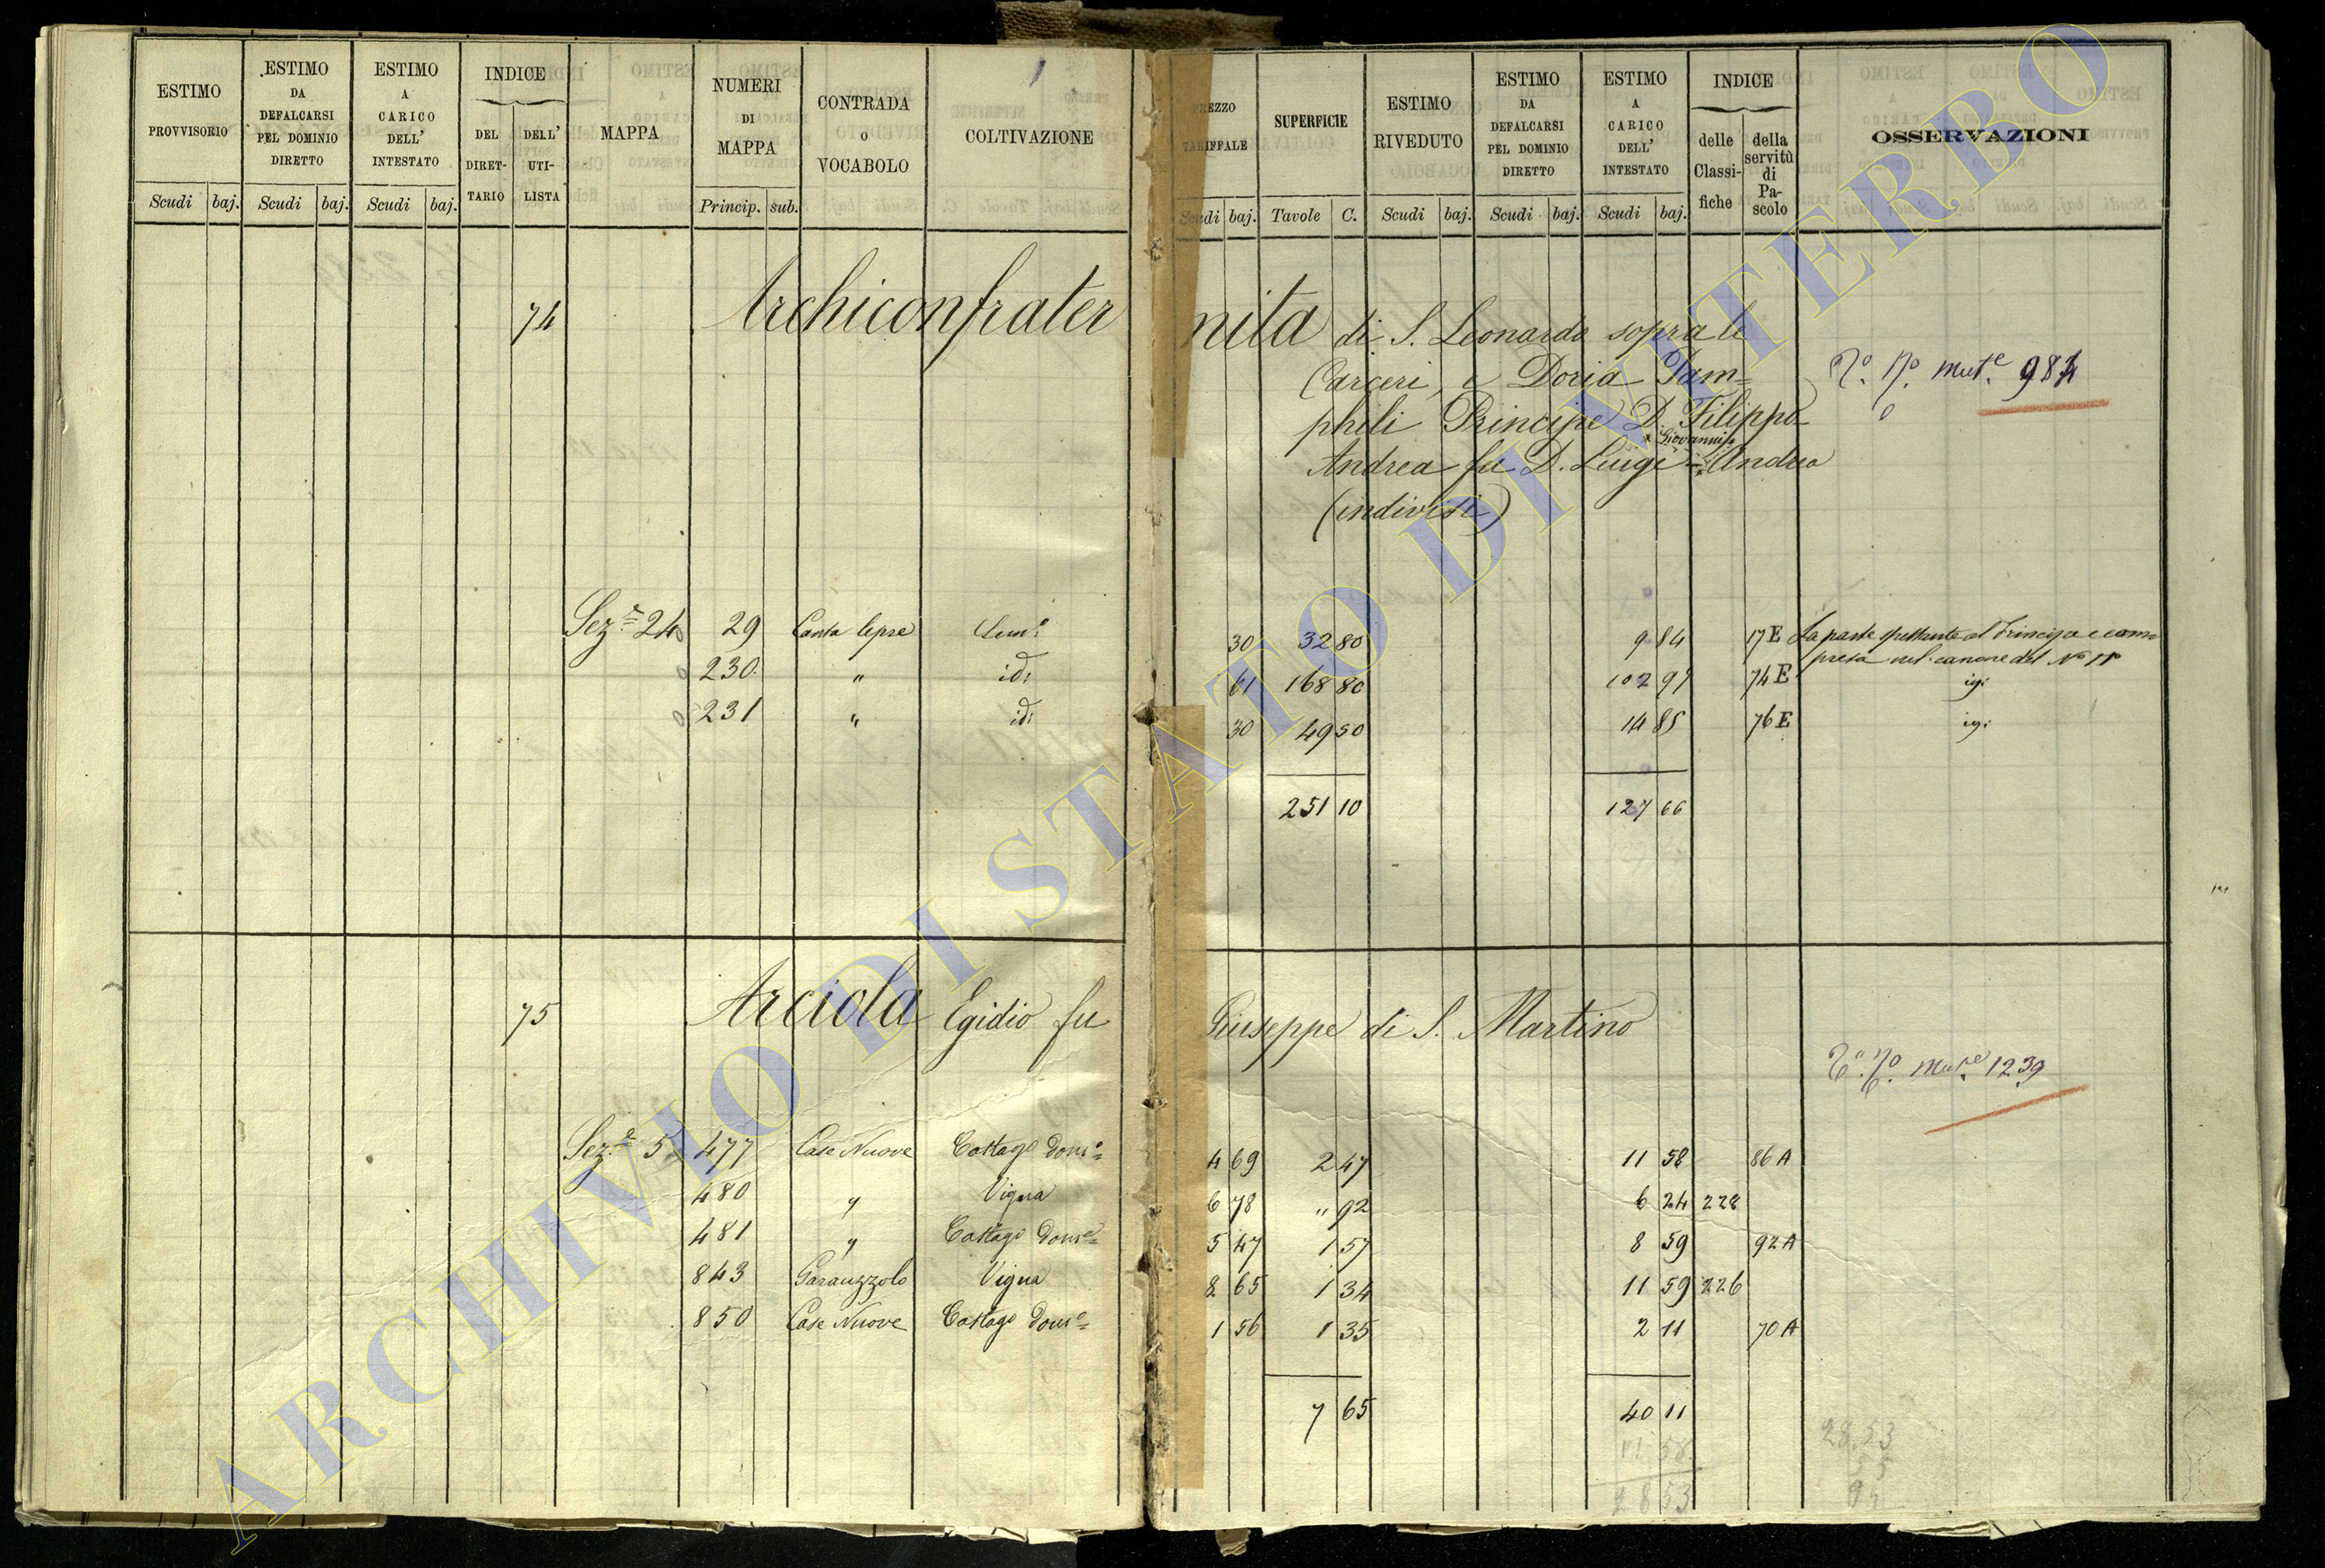 ESTIMO PROVVISORIO Scudi baj.
ESTIMO DA DEFALCARSI PEL DOMINIO DIRETTO Scudi baj.
ESTIMO A CARICO DELL' INTESTATO Scudi baj.
INDICE DEL DIRETTARIO DELL' UTILISTA
MAPPA
NUMERI DI MAPPA Princip. sub.
CONTRADA O VOCABOLO
COLTIVAZIONE
PREZZO TARIFFALE Scudi baj.
SUPERFICIE Tavole C.
ESTIMO RIVEDUTO Scudi baj.
ESTIMO DA DEFALCARSI PEL DOMINIO DIRETTO Scudi baj.
ESTIMO A CARICO DELL' INTESTATO Scudi baj.
INDICE delle Classifiche della servitù di Pascolo
OSSERVAZIONI
74 Archiconfraternita di S. Leonardo sopra le
Carceri, e Doria Pam=
phili Principe D. Filippo
Andrea fu D. Luigi Giovanni Andrea
(indivisi)
mut.e 984
Sez.e 24 29 Canta lepre Sem.o 30 32 80 9 84 17 E La parte spettante al Principe e com=
presa nel canone del No
230 " id: 61 168 80 102 97 74 E
231 " id: 30 49 50 14 85 76 E
251 10 127 66
75 Arciola Egidio fu Giuseppe di S. Martino
mut.e 1239
Sez.e 5 477 Case Nuove Castag.o Dom.o 4 69 2 47 11 58 86 A
480 " Vigna 6 78 " 92 6 24 228
481 " Castag.o Dom.o 5 47 1 57 8 59 92 A
843 Vigna 8 65 1 34 11 59 226
850 Case Nuove Castag.o Dom.o 1 56 1 35 2 11 70 A
7 65 40 11
11 58
28 53
28.53
ARCHIVIO DI STATO DI VITERBO